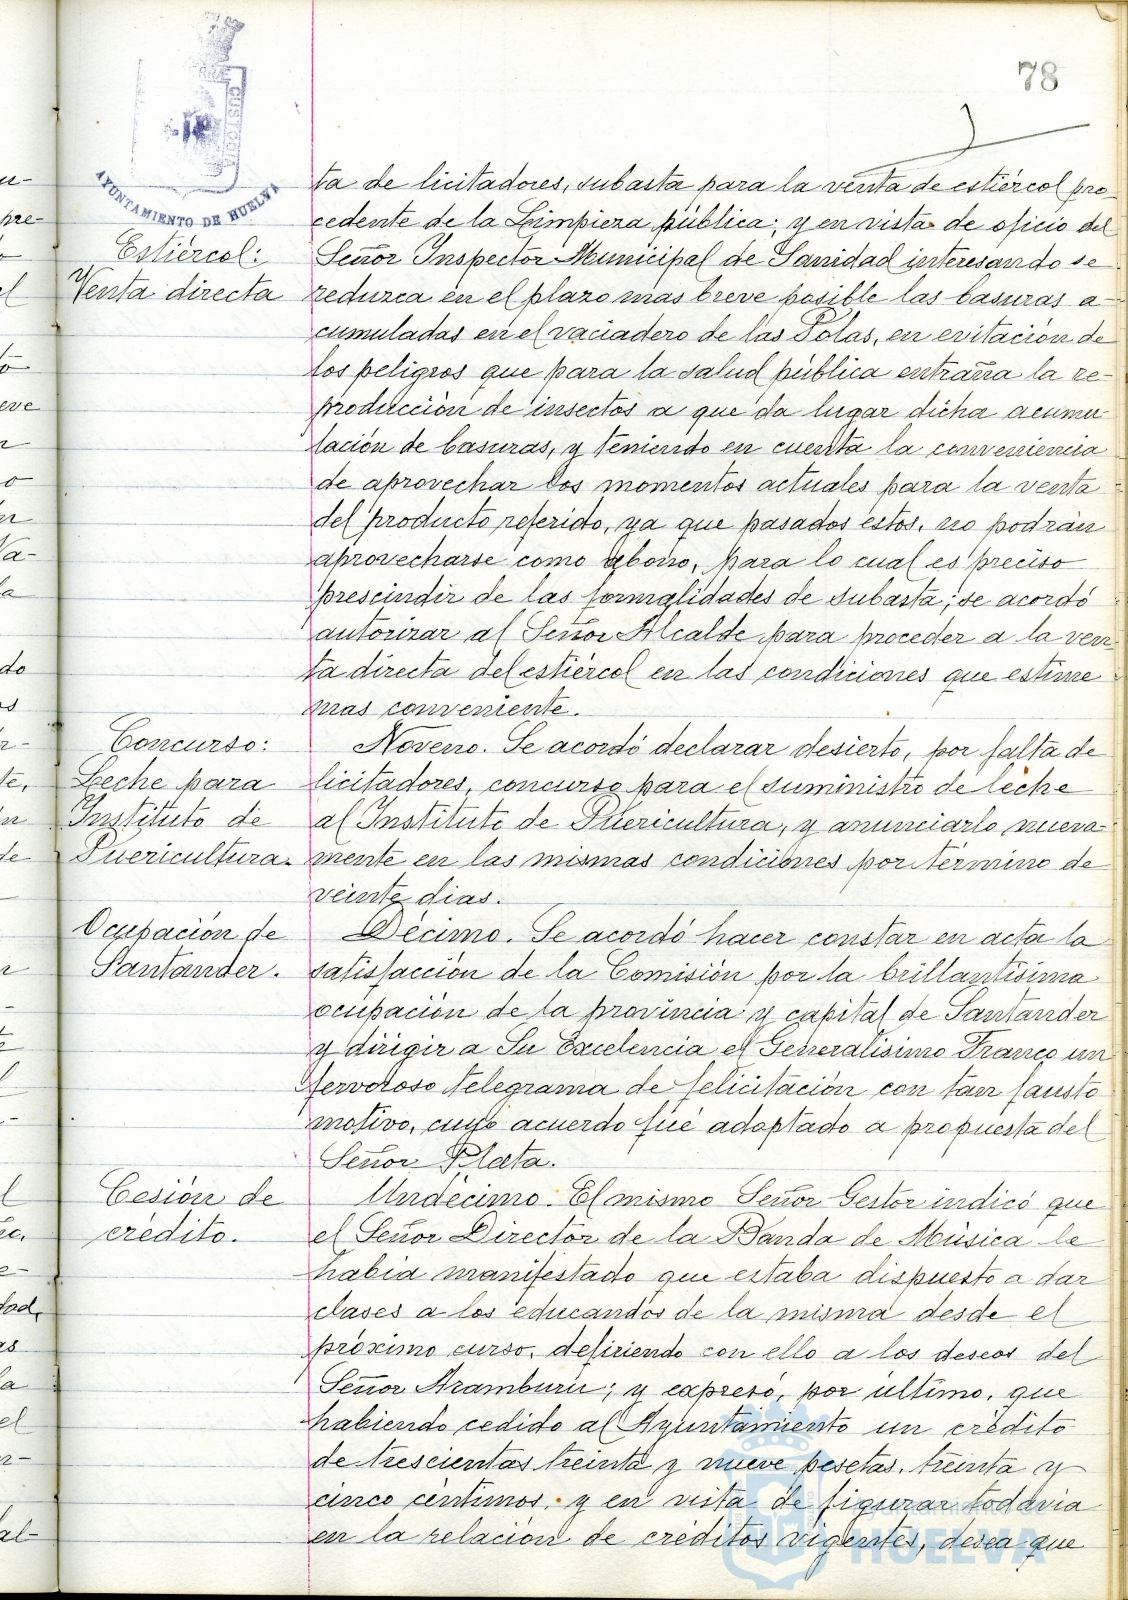 78
CUSTODIA
AYUNTAMIENTO DE HUELVA
Estiércol:
Venta directa
ta de licitadores, subasta para la venta de estiércol pro
cedente de la Limpieza pública; y en vista de oficio del
Señor Inspector Municipal de Sanidad interesando se
reduzca en el plazo mas breve posible las basuras a-
cumuladas en el vaciadero de las Polas, en evitación de
los peligros que para la salud pública entraña la re-
producción de insectos a que da lugar dicha acumu
lación de basuras, y teniendo en cuenta la conveniencia
de aprovechar los momentos actuales para la venta
del producto referido, ya que pasados estos, no podrán
aprovecharse como abono, para lo cual es preciso
prescindir de las formalidades de subasta; se acordó
autorizar al Señor Alcalde para proceder a la ven-
ta directa del estiércol en las condiciones que estime
mas conveniente.
Concurso:
Leche para
Instituto de
Puericultura.
Noveno. Se acordó declarar desierto, por falta de
licitadores, concurso para el suministro de leche
al Instituto de Puericultura, y anunciarlo nueva-
mente en las mismas condiciones por término de
veinte dias.
Ocupación de
Santander.
Décimo. Se acordó hacer constar en acta la
satisfacción de la Comisión por la brillantísima
ocupación de la provincia y capital de Santander
y dirigir a Su Excelencia el Generalísimo Franco un
fervoroso telegrama de felicitación con tan fausto
motivo, cuyo acuerdo fué adoptado a propuesta del
Señor Plata.
Cesión de
crédito.
Undécimo. El mismo Señor Gestor indicó que
el Señor Director de la Banda de Música le
habia manifestado que estaba dispuesto a dar
clases a los educandos de la misma desde el
próximo curso, defiriendo con ello a los deseos del
Señor Aramburu; y expresó, por último, que
habiendo cedido al Ayuntamiento un crédito
de trescientas treinta y nueve pesetas, treinta y
cinco céntimos, y en vista de figurar todavia
en la relación de créditos vigentes, desea que
Ayuntamiento de
HUELVA